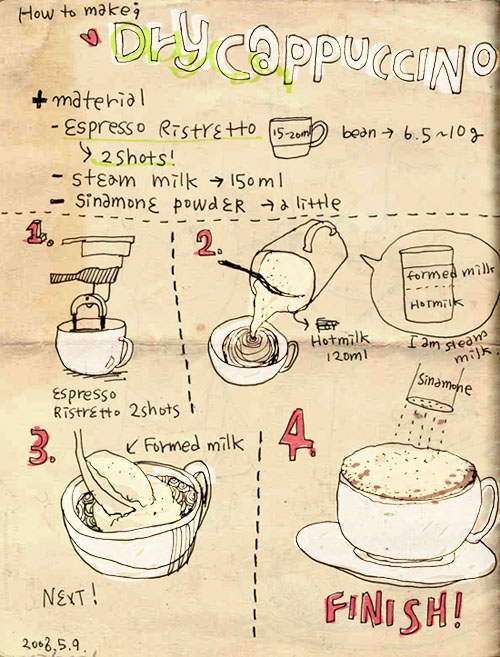 How to make;
Dry CAPPUCCINO
+ material
- Espresso Ristretto 15-20ml bean → 6.5~10g
↳ 2shots!
- steam milk → 150ml
- sinamone powder → a little
1.
Espresso
Ristretto 2shots
2.
Hotmilk
120ml
formed milk
Hotmilk
I am steam
milk.
3.
↙ Formed milk
NEXT!
4.
Sinamone
FINISH!
2008.5.9.